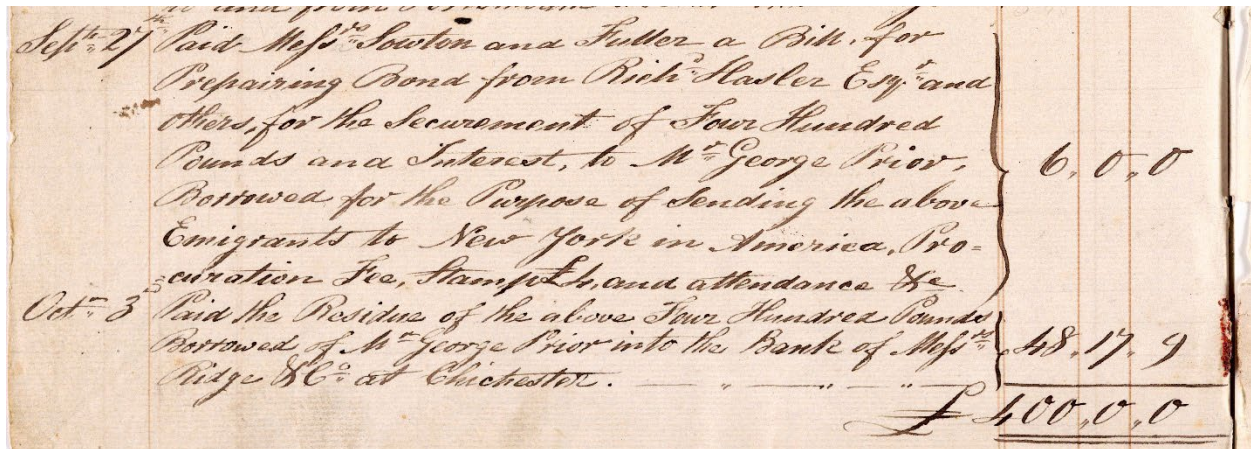 and from
Septr. 27th Paid Messrs. Sowton and Fuller a Bill, for
Prepairing Bond from Richd. Hasler Esqr. and
others, for the Securement of Four Hundred
Pounds and Interest, to Mr. George Prior, 6,, 0,, 0
Borrowed for the Purpose of Sending the above
Emigrants to New York in America, Pro=
=curation Fee, Stamp £4, and attendance &c.
Octr. 3d Paid the Residue of the above Four Hundred Pounds
Borrowed of Mr. George Prior into the Bank of Messrs. 48,, 17,, 9
Ridge & Co. at Chichester.
£ 400,, 0,, 0